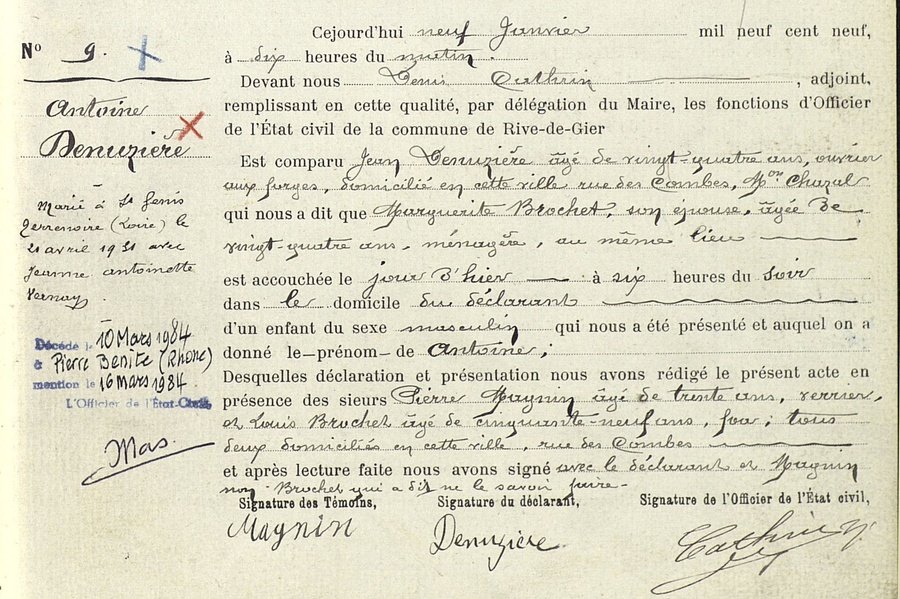 N° 9.
Antoine
Denuzière
Marié à St Genis
Terrenoire (Loire) le
21 avril 1931 avec
Jeanne antoinette
Vernay.
Décédé le 10 Mars 1984
à Pierre Benite (Rhone)
mention le 16 mars 1984
L'Officier de l'État-Civil,
Mas.
Cejourd'hui neuf Janvier mil neuf cent neuf,
à dix heures du matin.
Devant nous Denis Cathrin, adjoint,
remplissant en cette qualité, par délégation du Maire, les fonctions d'Officier
de l'État civil de la commune de Rive-de-Gier
Est comparu Jean Denuzière âgé de vingt-quatre ans, ouvrier
aux forges, domicilié en cette ville rue des Combes, Mon Chazal
qui nous a dit que Marguerite Brochet, son épouse, âgée de
vingt-quatre ans, ménagère, au même lieu
est accouchée le jour d'hier à six heures du soir
dans le domicile du déclarant
d'un enfant du sexe masculin qui nous a été présenté et auquel on a
donné le prénom de Antoine;
Desquelles déclaration et présentation nous avons rédigé le présent acte en
présence des sieurs Pierre Magnin âgé de trente ans, verrier,
et Louis Brochet âgé de cinquante-neuf ans, tous
deux domiciliés en cette ville, rue des Combes
et après lecture faite nous avons signé avec le déclarant et Magnin
non Brochet qui a dit ne le savoir faire-
Signature des Témoins,
Signature du déclarant,
Signature de l'Officier de l'État civil,
Magnin
Denuziere
Cathrin